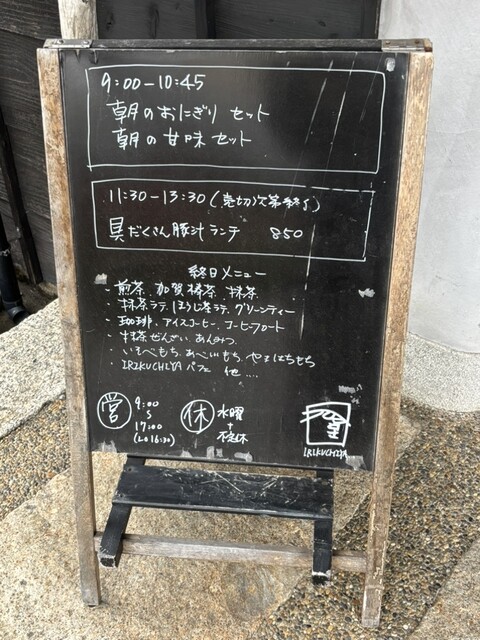 9:00-10:45
朝のおにぎり セット
朝の甘味 セット
11:30-13:30 (売切次第終了)
具だくさん豚汁ランチ 850
終日メニュー
・煎茶、加賀棒茶、抹茶
・抹茶ラテ、ほうじ茶ラテ、グリーンティー
・珈琲、アイスコーヒー、コーヒーフロート
・抹茶ぜんざい、あんみつ、
・いそべもち、あべかわもち、
・IRIKUCHIYA パフェ 他....
営 9:00
S
17:00
(Lo 16:30)
休 水曜
+
不定休
IRIKUCHIYA